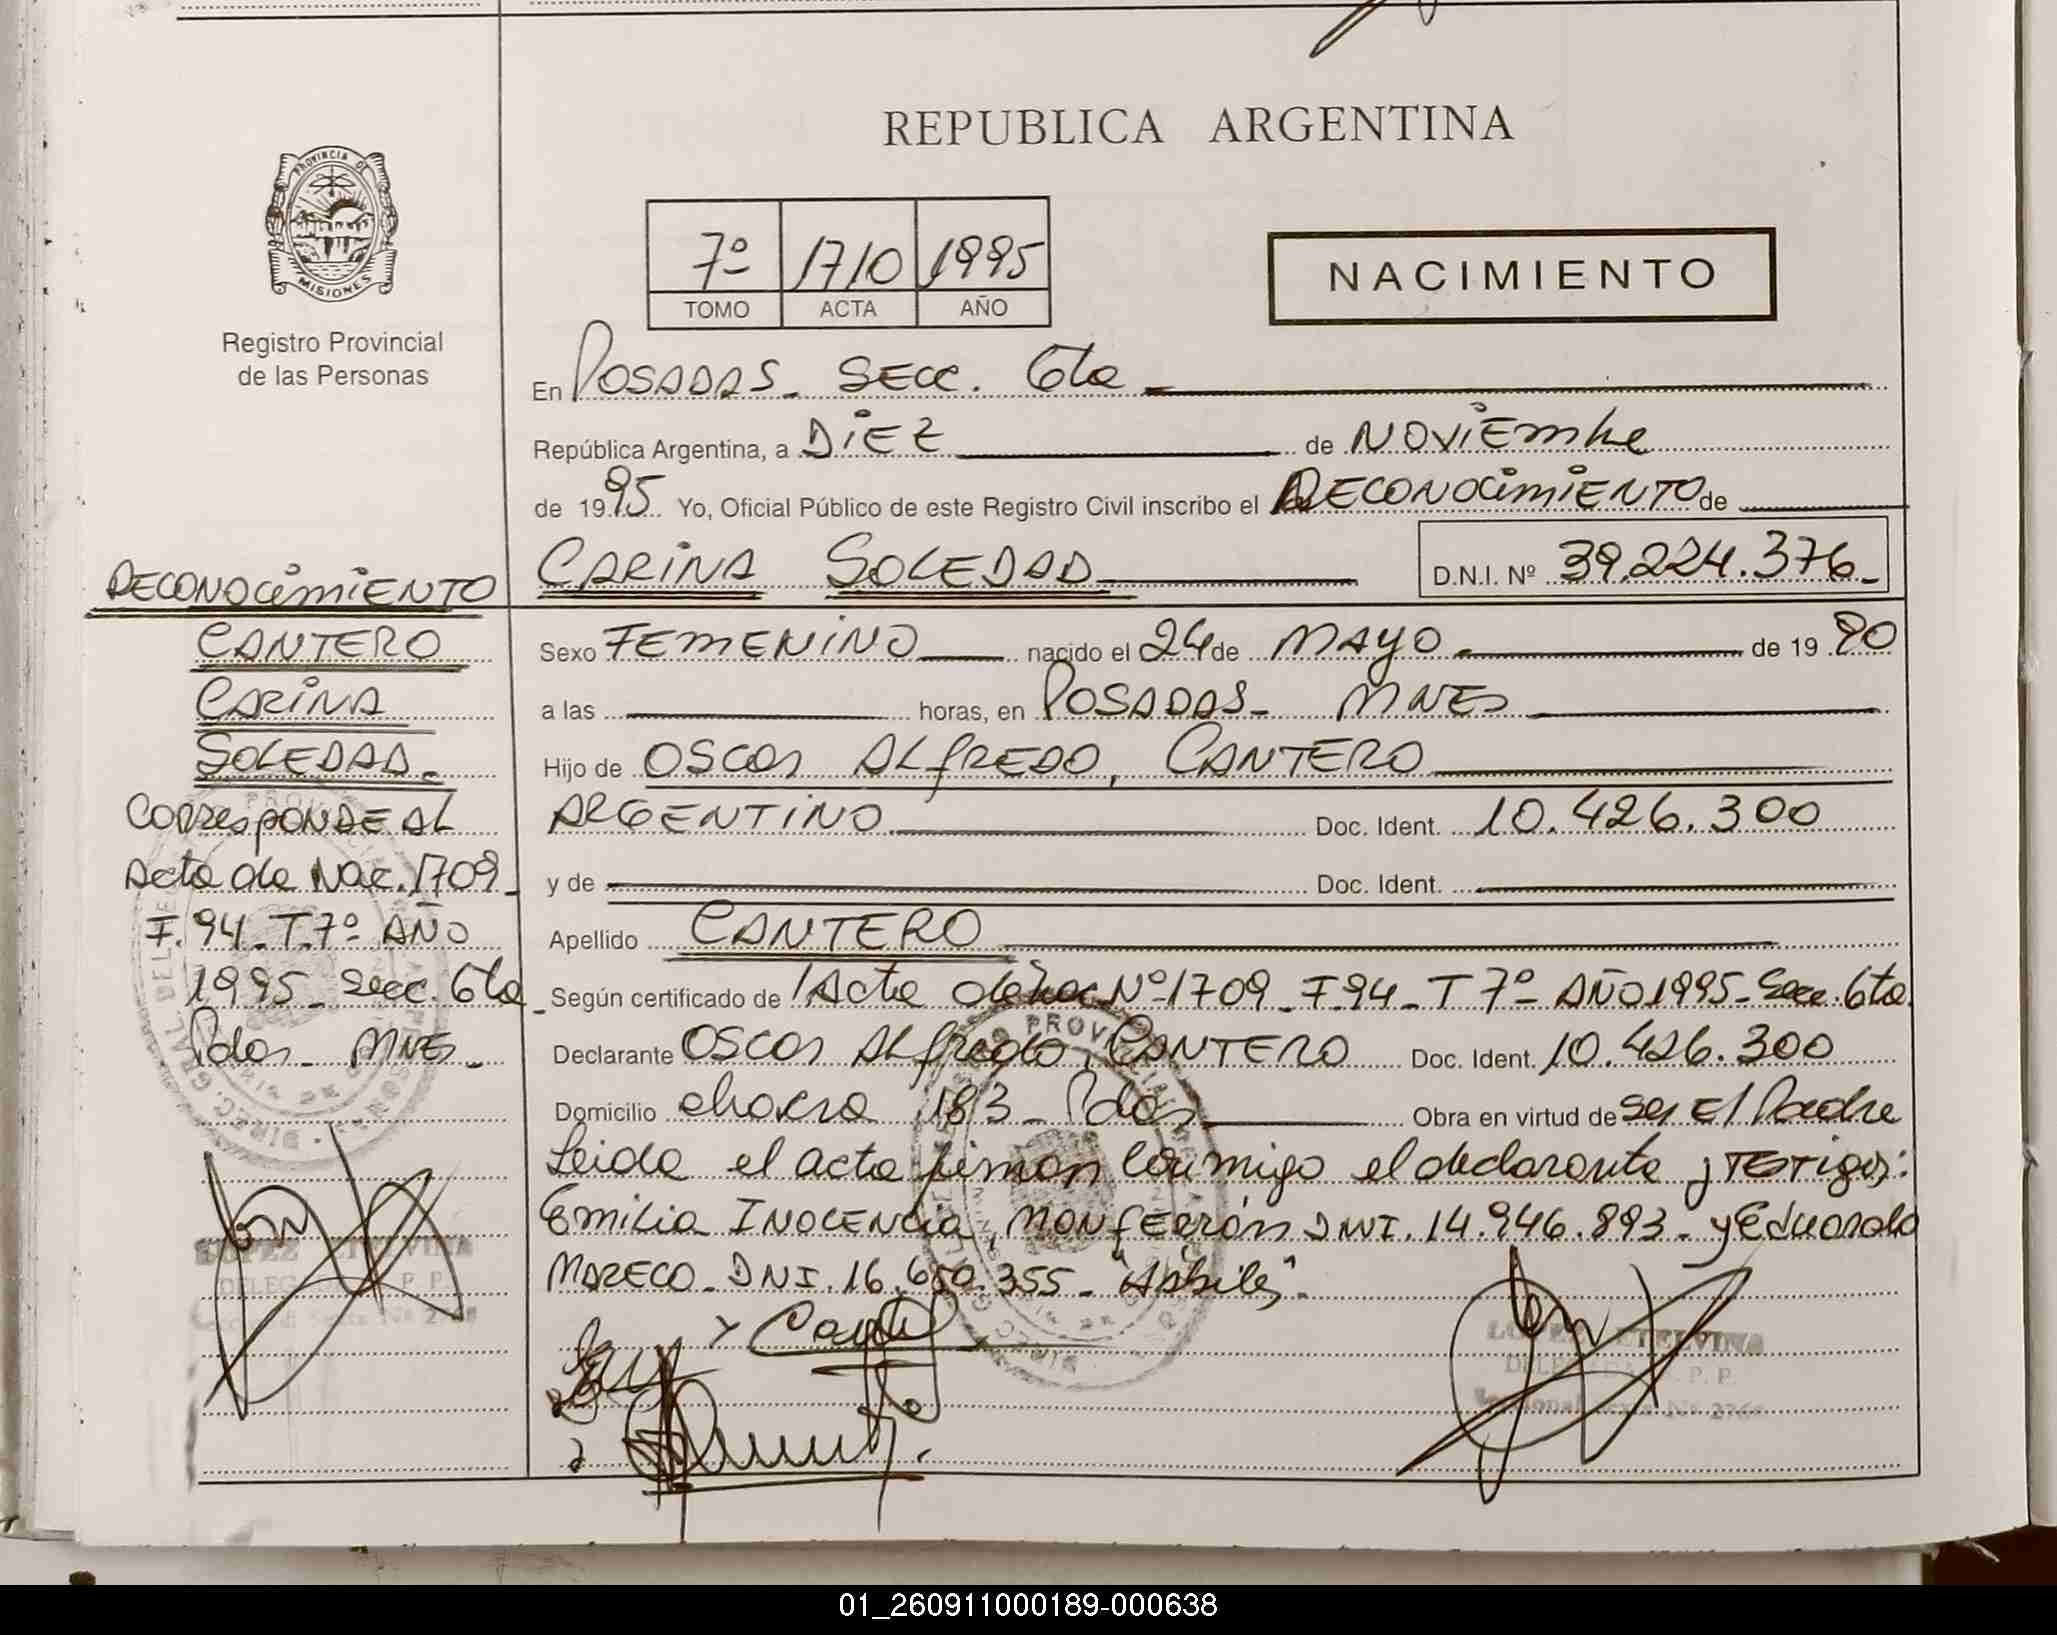 REPUBLICA ARGENTINA
PROVINCIA DE
MISIONES
Registro Provincial
de las Personas
7º 1710 1995
TOMO ACTA AÑO
NACIMIENTO
En POSADAS_ SECC. 6ta
República Argentina, a DIEZ de NOVIEMbre
de 1995 Yo, Oficial Público de este Registro Civil inscribo el RECONOCIMIENTO de
CARINA SOLEDAD D.N.I. Nº 39.224.376_
RECONOCIMIENTO
CANTERO
CARINA
SOLEDAD_
CORRESPONDE AL
Acta de Nac. 1709_
F. 94_ T. 7º AÑO
1995_ Secc. 6ta_
Pdas_ MNES_
Sexo FEMENINO nacido el 24 de MAYO de 19 90
a las horas, en POSADAS_ MNES
Hijo de OSCAR ALFREDO, CANTERO
ARGENTINO Doc. Ident. 10.426.300
y de Doc. Ident.
Apellido CANTERO
Según certificado de Acta de Nac Nº 1709_ F 94_ T 7º_ AÑO 1995_ Secc. 6ta.
Declarante OSCAR Alfredo, CANTERO Doc. Ident. 10.426.300
Domicilio chacra 183_ Pdas Obra en virtud de ser El Padre
Leida el acta firman conmigo el declarante y TESTigos:
Emilia INOCENCia, MONFERRÁN DNI. 14.946.893_ y Eduardo
MARECO_ DNI. 16.650.355_ "Hábiles".
LOPEZ ETELVINA
LOPEZ ETELVINA
01_260911000189-000638